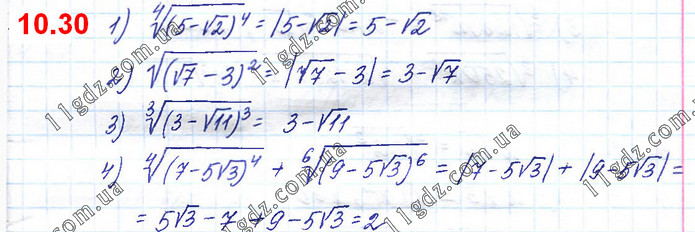 10.30
1) ⁴√(5-√2)⁴ = |5-√2| = 5-√2
2) √(√7-3)² = |√7-3| = 3-√7
3) ³√(3-√11)³ = 3-√11
4) ⁴√(7-5√3)⁴ + ⁶√(9-5√3)⁶ = |7-5√3| + |9-5√3| =
= 5√3-7+9-5√3 = 2
11gdz.com.ua
11gdz.com.ua
11gdz.com.ua
11gdz.com.ua
11gdz.com.ua